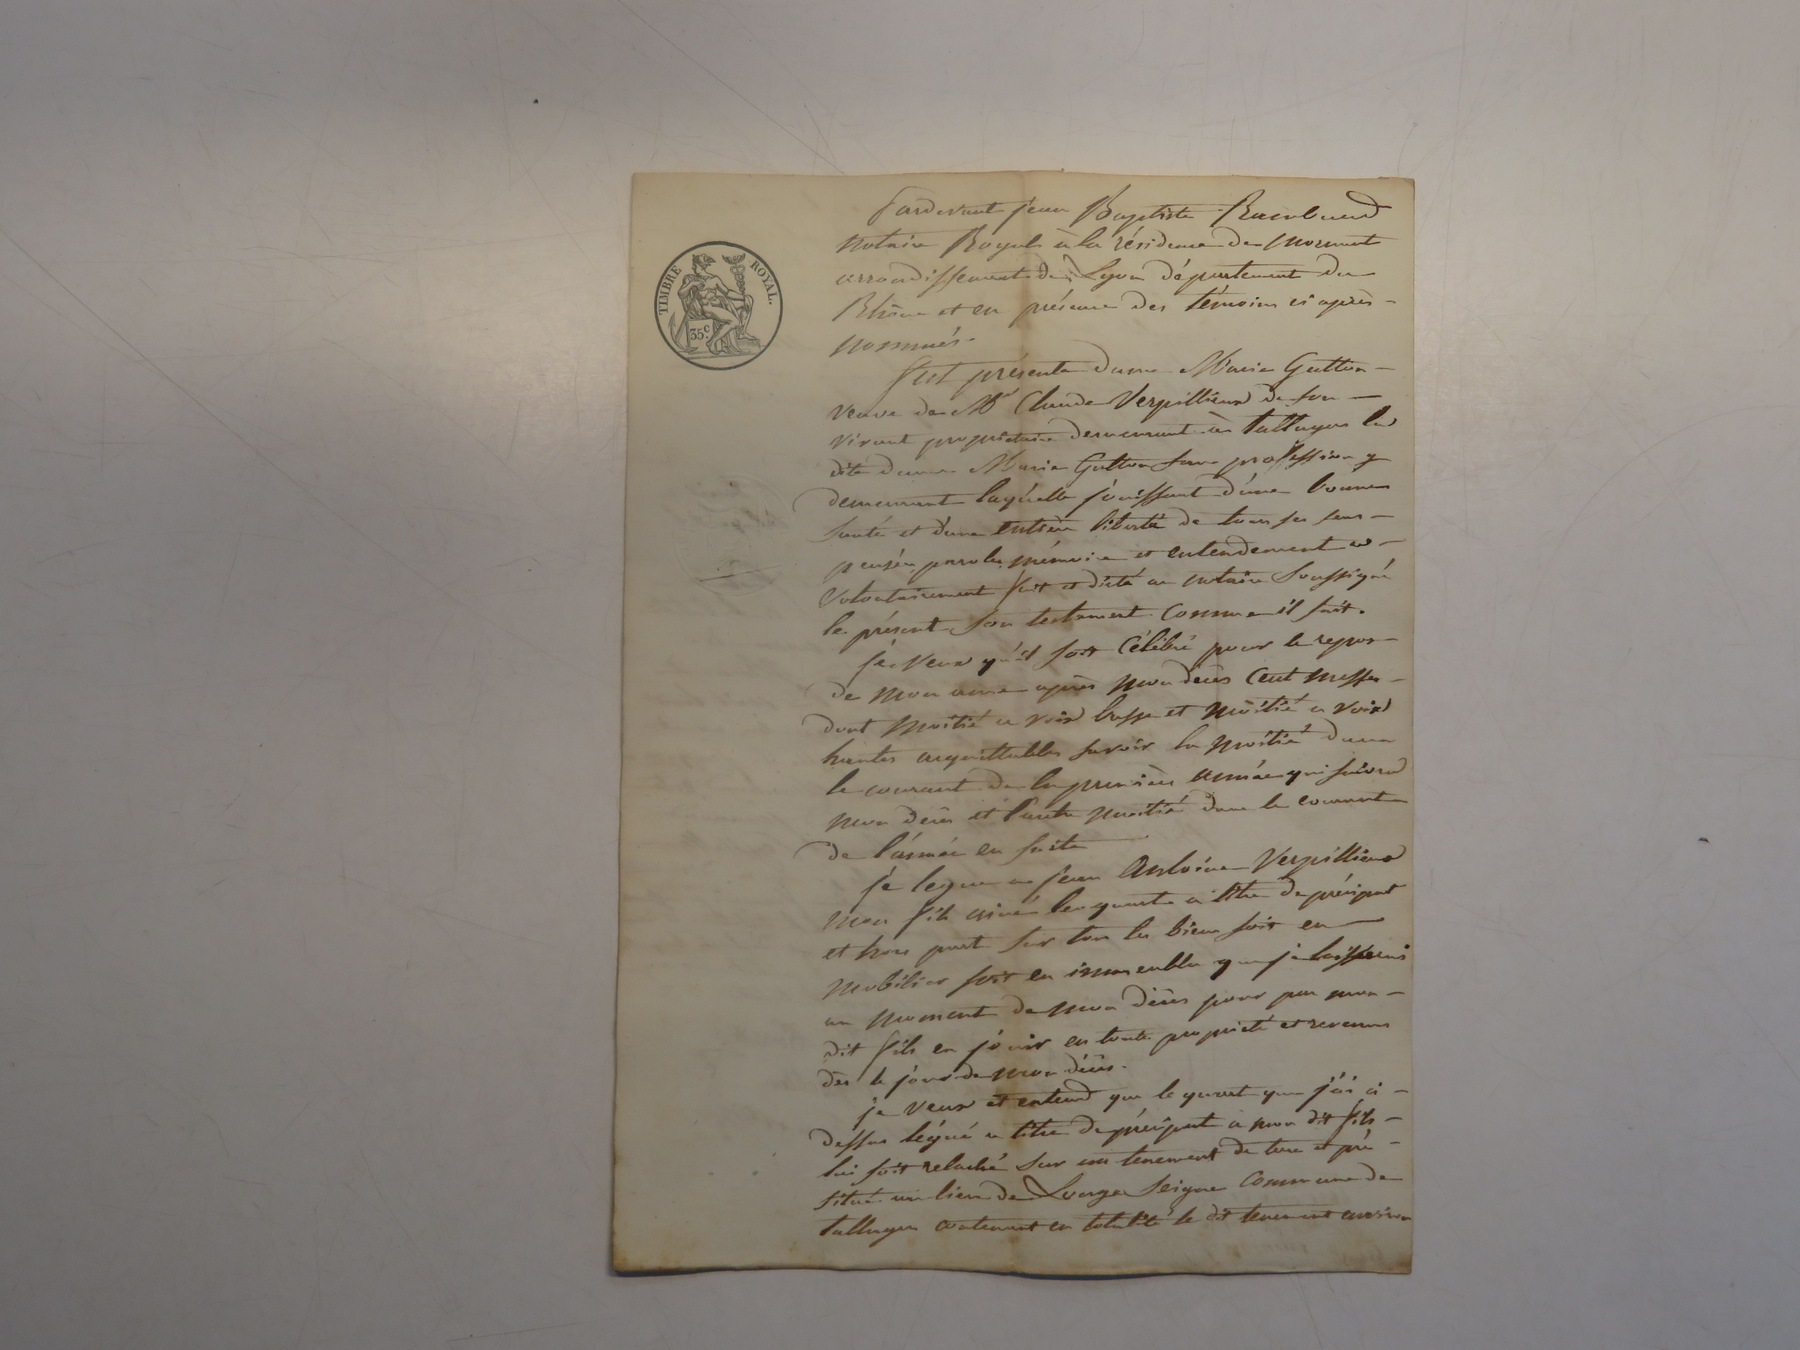 TIMBRE ROYAL.
35 c.
Pardevant jean Baptiste Raimbaud
notaire Royal à la résidence de mornant
arrondissement de Lyon département du
Rhône et en présence des témoins ci après
nommés.
fut présente dame Marie Gutton
veuve de Mr Claude Verpillieux de son
vivant propriétaire demeurant à talluyers la
dite dame Marie Gutton sans profession y
demeurant laquelle jouissant d'une bonne
santé et d'une entière liberté de tous ses sens
pensée, parole, mémoire et entendement a
volontairement fait et dicté au notaire Soussigné
le présent son testament comme il suit.
je veux qu'il soit célébré pour le repos
de mon ame après mon décès cent messes
dont moitié a voix basse et moitié a voix
hautes acquittables savoir la moitié dans
le courant de la première année qui suivra
mon décès et l'autre moitié dans le courant
de l'année en suite
je legue a jean Antoine Verpillieux
mon fils ainé le quart a titre de préciput
et hors part sur tous les biens soit en
mobilier soit en immeubles que je laisserai
au moment de mon décès pour par mon
dit fils en jouir en toute propriété et revenus
dès le jour de mon décès.
je veux et entend que le quart que j'ai ci
dessus légué a titre de préciput a mon dit fils
lui soit relaché sur un tenement de terre et pré
situé au lieu de Seigne commune de
talluyers contenant en totalité le dit tenement environ